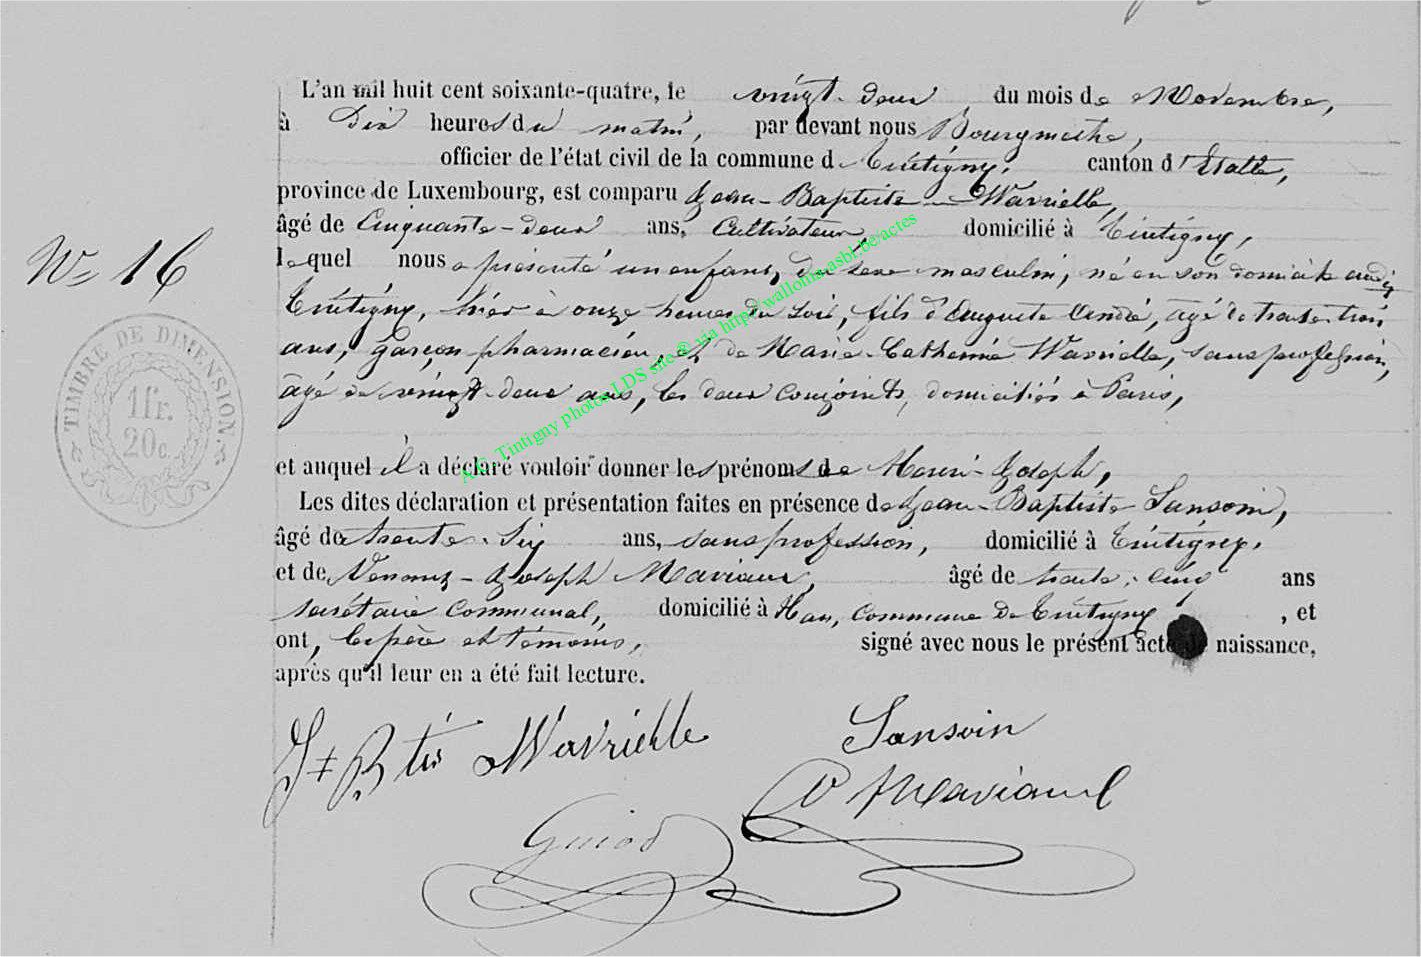 L'an mil huit cent soixante-quatre, le vingt-deux du mois de Novembre,
à Dix heures du matin, par devant nous Bourgmestre,
officier de l'état civil de la commune de Tintigny, canton d'Etalle,
province de Luxembourg, est comparu Jean-Baptiste Wavrielle,
âgé de Cinquante-deux ans, Cultivateur, domicilié à Tintigny,
lequel nous a présenté un enfant, du sexe masculin, né en son domicile audit
N° 16
Tintigny, hier à onze heures du soir, fils d'Auguste André, agé de trente-trois
ans, garçon pharmacien, et de Marie-Catherine Wavrielle, sans profession,
âgé de vingt-deux ans, les deux conjoints, domiciliés à Paris,
TIMBRE DE DIMENSION.
1 fr.
20 c.
et auquel il a déclaré vouloir donner les prénoms de Henri-Joseph,
Les dites déclaration et présentation faites en présence de Jean-Baptiste Sansoin,
âgé de trente-six ans, sans profession, domicilié à Tintigny,
et de Joseph Maviaux, âgé de trente-cinq ans
secrétaire communal, domicilié à Han, commune de Tintigny, et
ont, le père et témoins, signé avec nous le présent acte de naissance,
après qu'il leur en a été fait lecture.
J Bte Wavrielle Sansoin
Maviaux
Guiod
A.C. Tintigny photos LDS site @ via http://wallonia-asbl.be/actes